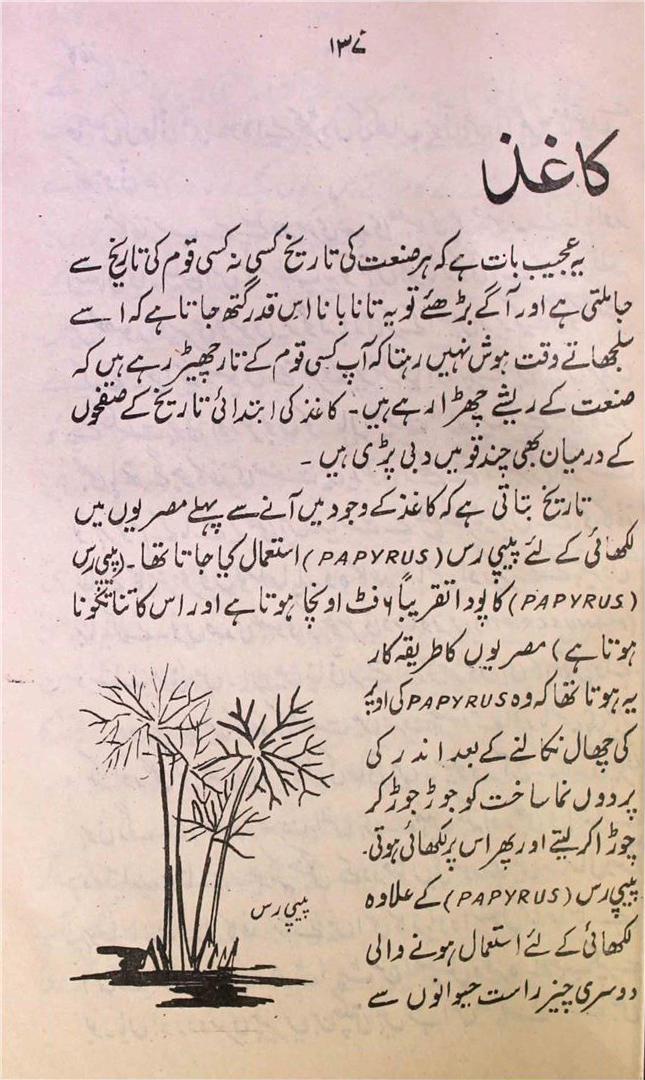 ۱۳۷
کاغذ
یہ عجیب بات ہے کہ ہر صنعت کی تاریخ کسی نہ کسی قوم کی تاریخ سے
جا ملتی ہے اور آگے بڑھئے تو یہ تانا بانا اس قدر گتھ جاتا ہے کہ اسے
سلجھاتے وقت ہوش نہیں رہتا کہ آپ کسی قوم کے تار چھیڑ رہے ہیں کہ
صنعت کے ریشے چھڑا رہے ہیں۔ کاغذ کی ابتدائی تاریخ کے صفحوں
کے درمیان بھی چند قومیں دبی پڑی ہیں۔
تاریخ بتاتی ہے کہ کاغذ کے وجود میں آنے سے پہلے مصریوں میں
لکھائی کے لئے پیپی رس (PAPYRUS) استعمال کیا جاتا تھا۔ (پیپی رس
(PAPYRUS) کا پودا تقریباً ۶ فٹ اونچا ہوتا ہے اور اس کا تنا تکونا
ہوتا ہے) مصریوں کا طریقہ کار
یہ ہوتا تھا کہ وہ PAPYRUS کی اوپر
کی چھال نکالنے کے بعد اندر کی
پردوں نما ساخت کو جوڑ جوڑ کر
چوڑا کر لیتے اور پھر اس پر لکھائی ہوتی۔
پیپی رس (PAPYRUS) کے علاوہ
لکھائی کے لئے استعمال ہونے والی
دوسری چیز راست حیوانوں سے
پیپی رس